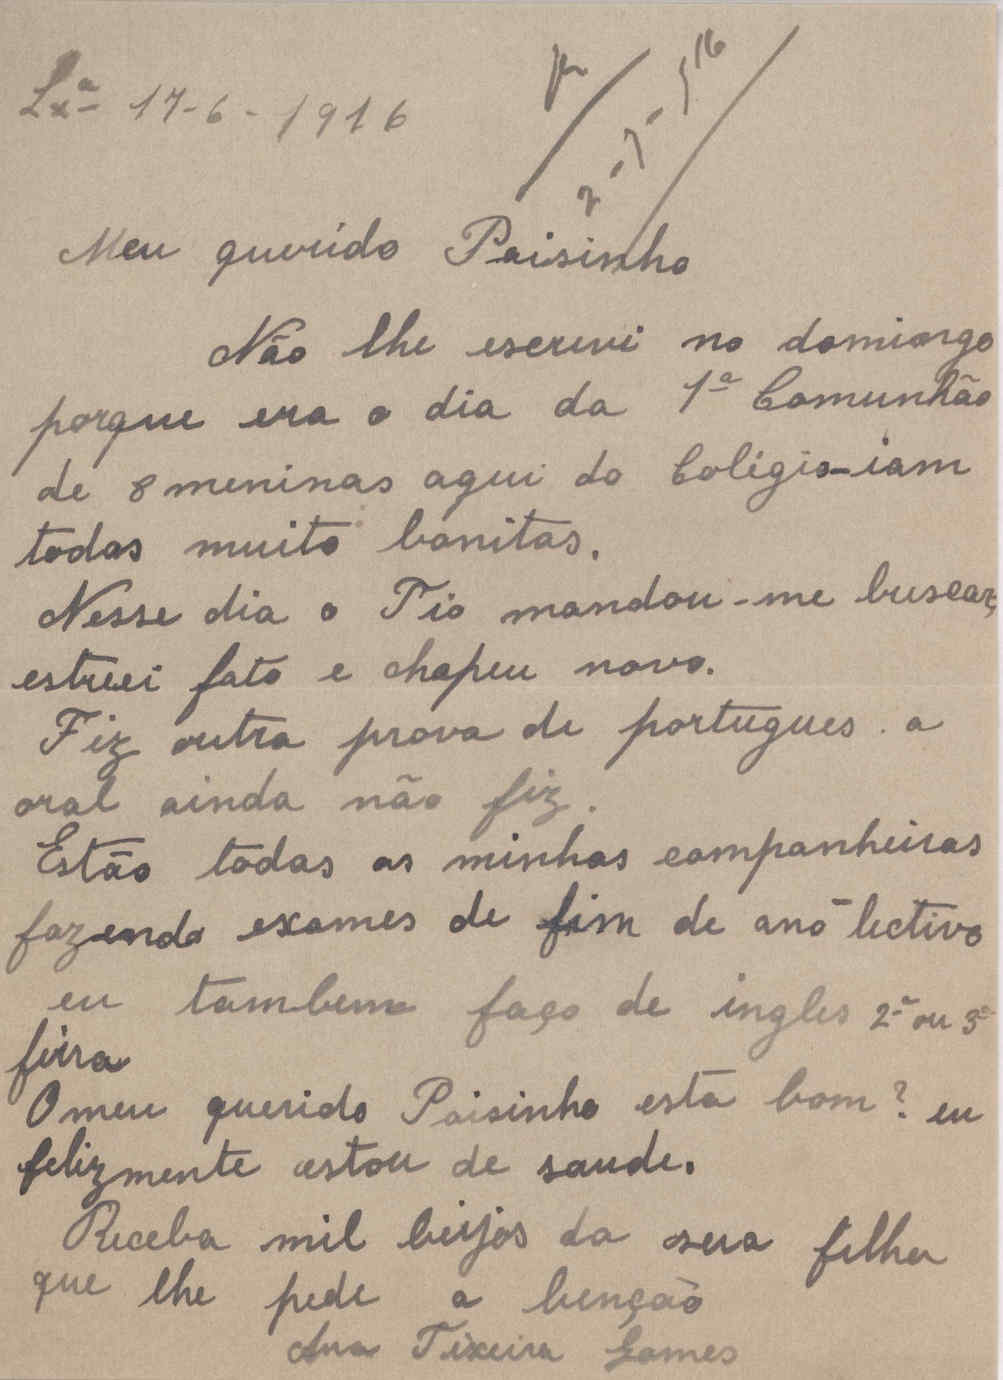 Lxª 17-6-1916
2-7-916
Meu querido Paisinho
Não lhe escrevi no domiongo
porque era o dia da 1ª Comunhão
de 8 meninas aqui do Colégio-iam
todas muito bonitas.
Nesse dia o Tio mandou-me buscar,
estreei fato e chapeu novo.
Fiz outra prova de portugues. a
oral ainda não fiz.
Estão todas as minhas companheiras
fazendo exames de fim de ano lectivo
eu tambem faço de ingles 2ª ou 3ª
feira
O meu querido Paisinho esta bom? eu
felizmente estou de saude.
Receba mil beijos da sua filha
que lhe pede a benção
Ana Teixeira Gomes